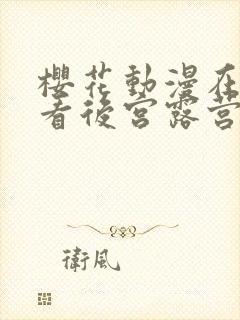 櫻花動漫在
看後宮露營
衛風